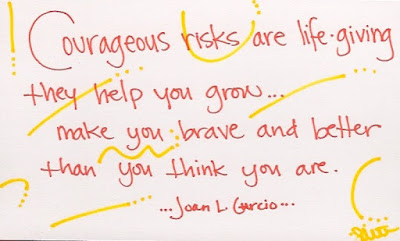 Courageous risks are life-giving
they help you grow...
make you brave and better
than you think you are.
...Joan L. Curcio...